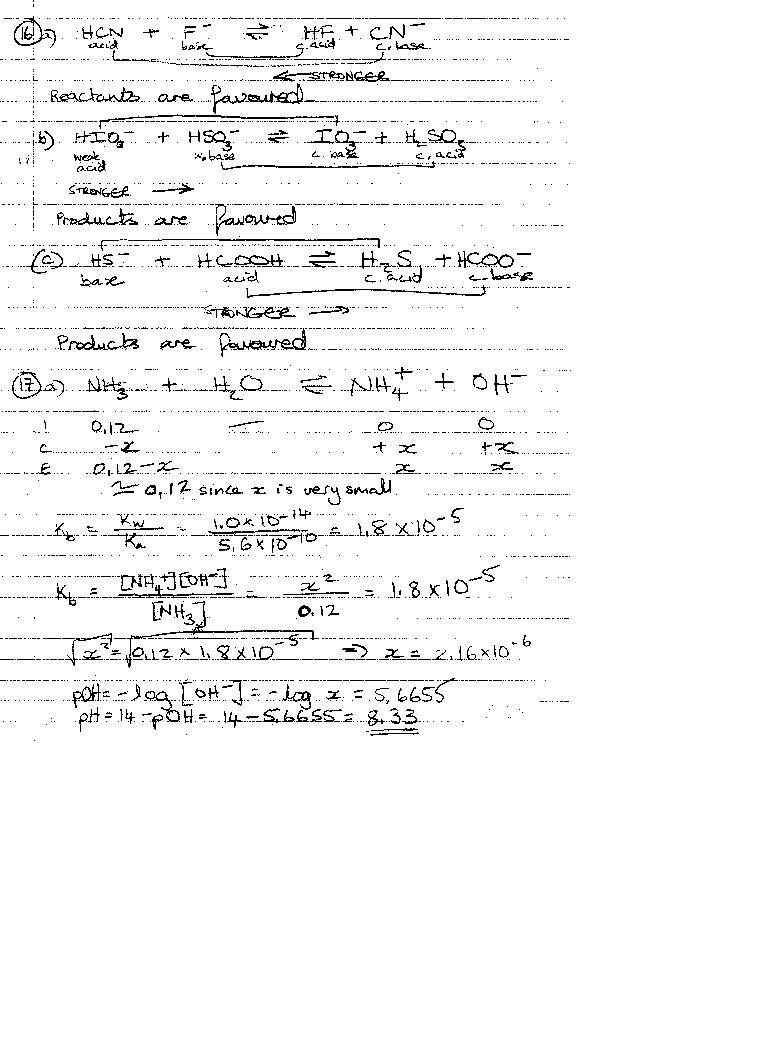 16 a) HCN + F⁻ ⇌ HF + CN⁻
acid base c. acid c. base
← STRONGER
Reactants are favoured
b) HIO₃ + HSO₃⁻ ⇌ IO₃⁻ + H₂SO₃
weak acid w. base c. base c. acid
STRONGER →
Products are favoured
(c) HS⁻ + HCOOH ⇌ H₂S + HCOO⁻
base acid c. acid c. base
STRONGER →
Products are favoured
17 a) NH₃ + H₂O ⇌ NH₄⁺ + OH⁻
I 0.12 — 0 0
C -x +x +x
E 0.12-x x x
≃ 0.12 since x is very small
Kb = Kw/Ka = 1.0×10⁻¹⁴/5.6×10⁻¹⁰ = 1.8×10⁻⁵
Kb = [NH₄⁺][OH⁻]/[NH₃] = x²/0.12 = 1.8×10⁻⁵
√x² = √0.12×1.8×10⁻⁵ ⇒ x = 2.16×10⁻⁶
pOH = -log [OH⁻] = -log x = 5.6655
pH = 14 - pOH = 14 - 5.6655 = 8.33